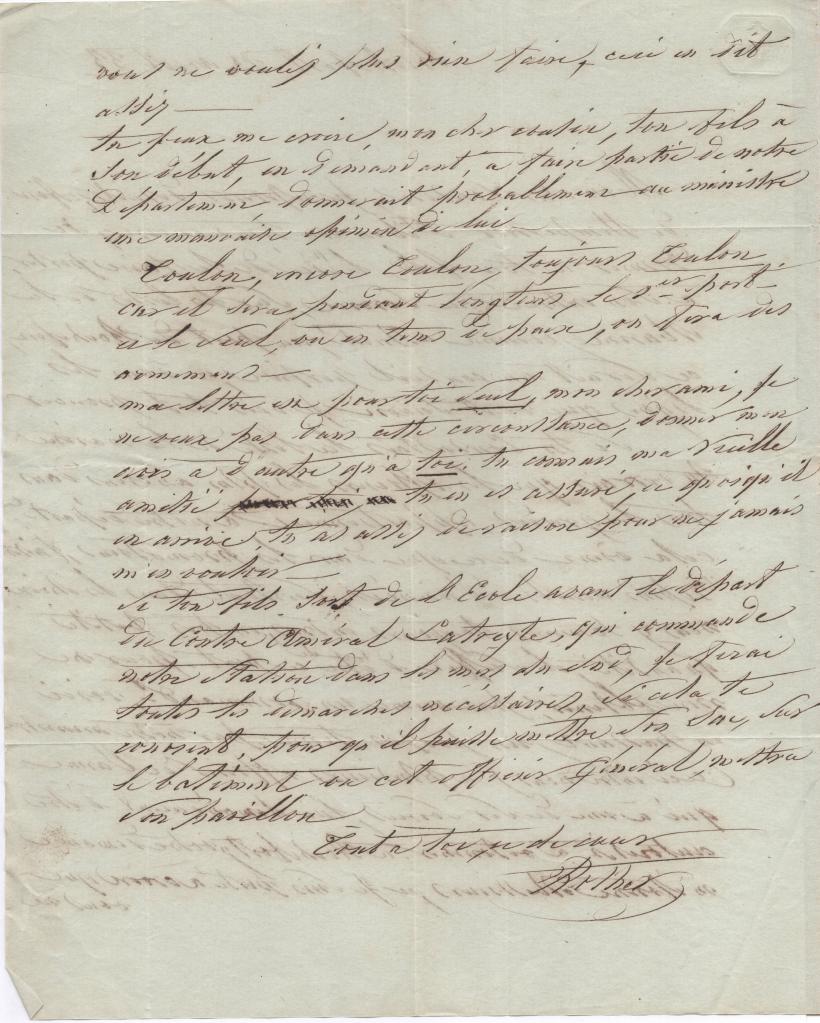 vous ne voulez plus rien faire, ceci en dit
assez —
tu peux me croire, mon cher cousin, ton fils à
son début, en demandant, a faire partie de notre
Département donnerait probablement au ministre
une mauvaise opinion de lui —
Toulon, encore Toulon, toujours Toulon,
car il sera pendant longtems, le 1er port —
et le seul, ou en tems de paix, on fera des
armemens —
ma lettre est pour toi seul, mon cher ami, je
ne veux pas dans cette circonstance, donner mon
avis a d'autre qu'à toi, tu connais ma vieille
amitié tu en es assuré, et quoiqu'il
en arrive, tu as assez de raison pour ne jamais
m'en vouloir —
Si ton fils sort de l'Ecole avant le départ
du Contre Amiral Latreyte, qui commande
notre Station dans les mers du Sud, je ferai
toutes les demarches nécéssaires, si cela te
convient, pour qu'il puisse mettre son sac, sur
le batiment ou cet officier Général mettra
son pavillon
Tout a toi de cœur